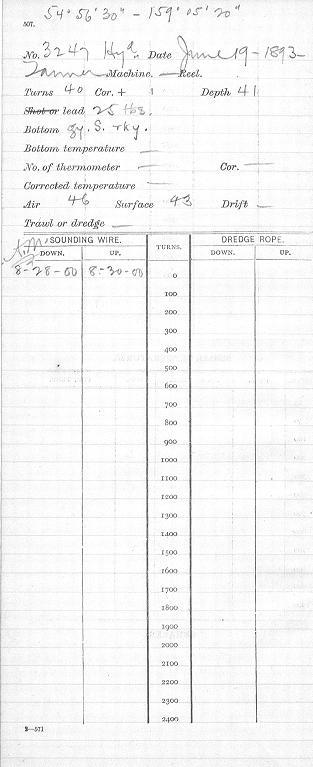 54° 56' 30" - 159° 05' 20"
507.
No. 3247 Hyd. Date June 19-1893-
Tanner Machine. — Reel.
Turns 40 Cor. + 1 Depth 41
Shot or lead 25 lbs.
Bottom gy. S. rky.
Bottom temperature —
No. of thermometer — Cor. —
Corrected temperature —
Air 46 Surface 43 Drift —
Trawl or dredge —
A.M. SOUNDING WIRE. TURNS. DREDGE ROPE.
DOWN. UP. DOWN. UP.
8-28-00 8-30-00 0
100
200
300
400
500
600
700
800
900
1000
1100
1200
1300
1400
1500
1600
1700
1800
1900
2000
2100
2200
2300
2400
2—571